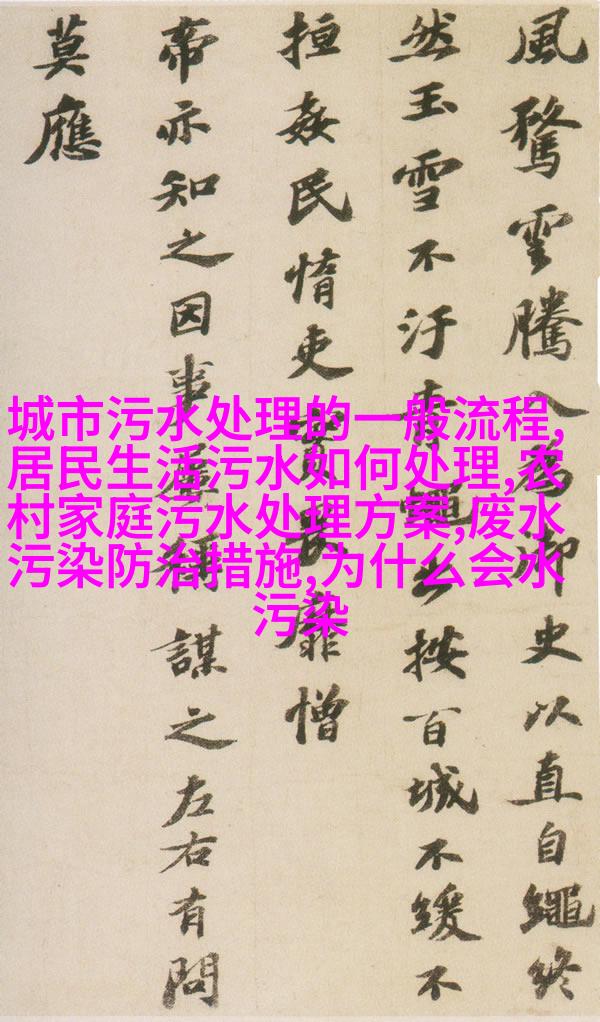 風騖雲騰入為御史以直自繩終
然玉雪不汙青蠅出按百城不緩不
搄姦民惰吏實畏靡憎
帝亦知之因事屢稱謀之左右有問
莫應
城市污水处理的一般流程,
居民生活污水如何处理,农
村家庭污水处理方案,废水
污染防治措施,为什么会水
污染